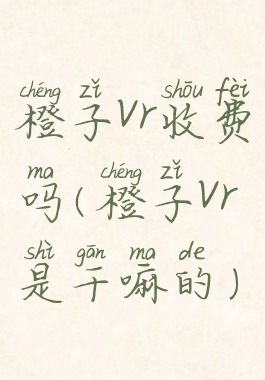 chéng zǐ shōu fèi
橙子Vr收费
ma chéng zǐ
吗(橙子Vr
shì gān ma de
是干嘛的)